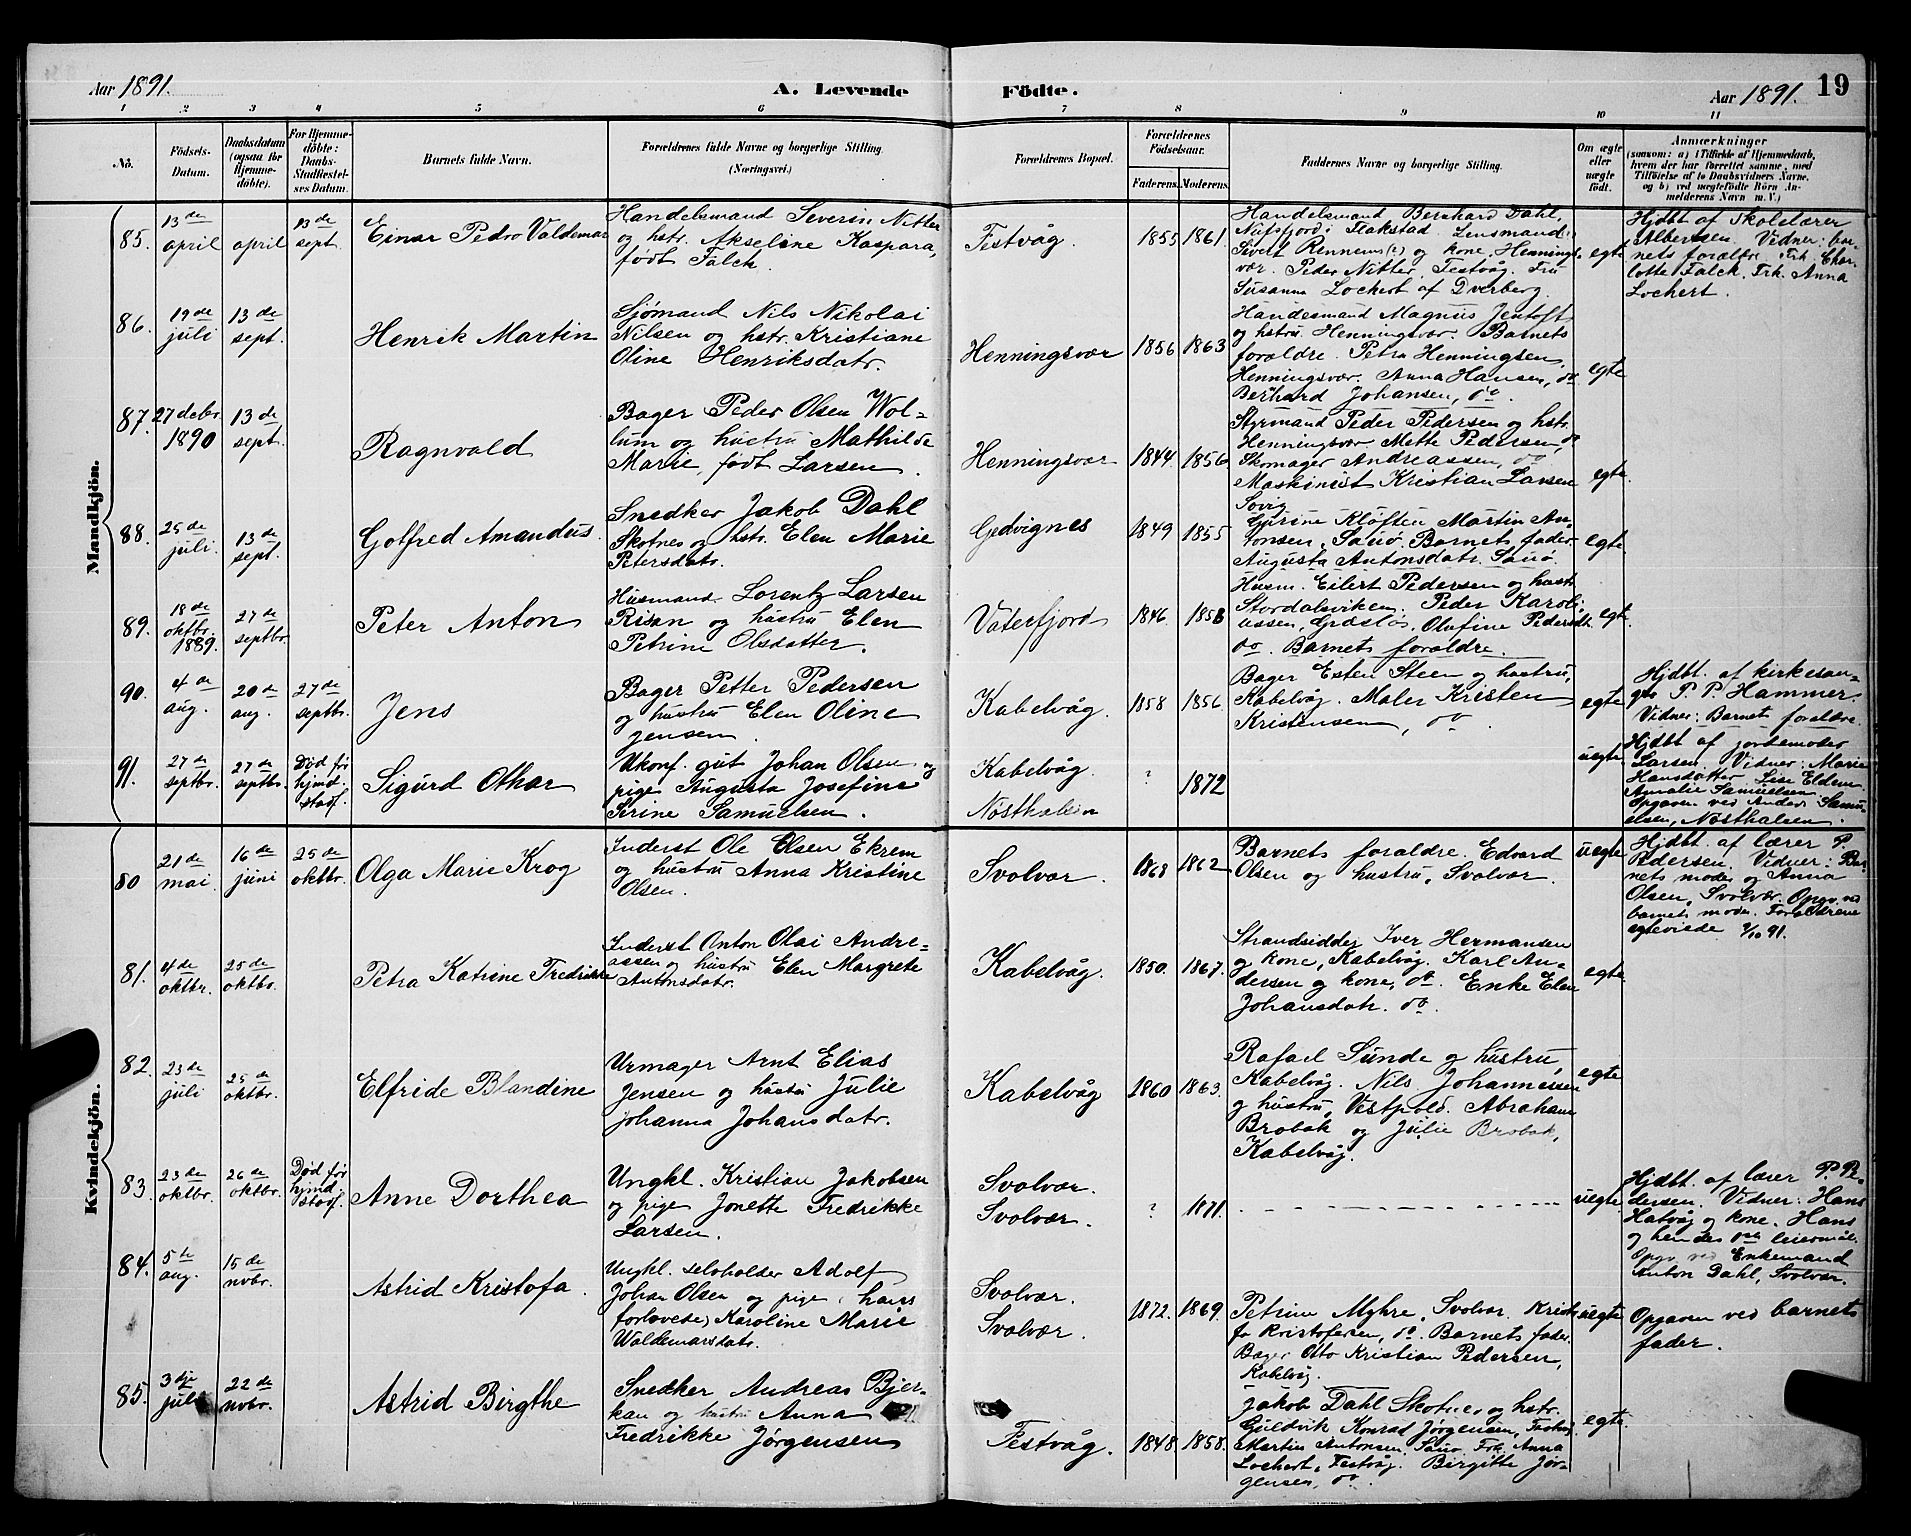 Aar 1891.
A. Levende
Födte.
Aar 1891.
19
1 2 3 4 5 6 7 8 9 10 11
No.
Födsels-
Datum.
Daabsdatum
(ogsaa for
Hjemme-
döbte).
For Hjemme-
döbte:
Daabs-
Stadfestel-
ses Datum.
Barnets fulde Navn.
Forældrenes fulde Navne og borgerlige Stilling
(Næringsvei.)
Forældrenes Bopæl.
Forældrenes
Födselsaar.
Faderens. Moderens.
Faddernes Navne og borgerlige Stilling.
Om ægte
eller
uægte
födt.
Anmærkninger
(saasom: a) i Tilfælde af Hjemmedaab,
hvem der har forrettet samme, med
Tilföielse af to Daabsvidners Navne,
og b) ved uægtefödte Börn An-
melderens Navn m. V.)
Mandkjön.
85.
13de
april
april
13de
sept.
Einar Pedro Valdemar
Handelsmand Severin Nitter
og hstr. Akseline Kaspara,
født Falck.
Festvåg.
1855 1861.
Handelsmand Bernhard Dahl,
Nufsfjord i Flakstad. Lensmand
Sivert Rennem(?) og kone, Hennings-
vær. Peder Nitter, Festvåg. Fru
Susanna Lochert af Dverberg.
egte
Hjdbt af Skolelærer
Albertsen. Vidner: bar-
nets forældre. Frk. Char-
lotte Falck. Frk. Anna
Lochert.
86.
19de
juli
13de
sept.
Henrik Martin
Sjømand Nils Nikolai
Nilsen og hstr. Kristiane
Oline Henriksdatr.
Henningsvær
1856 1863
Handesmand Magnus Jentoft
og hstru Henningsvær. Barnets
foraldre. Petra Henningsen,
Henningsvær. Anna Hansen, do
Berhard Johansen, do.
egte
87.
27 debr.
1890
13de
sept.
Ragnvald
Bager Peder Olsen Wol-
lum og hustru Mathilde
Marie, født Larsen.
Henningsvær
1844 1856
Styrmand Peder Pedersen og hstr.
Henningsvær Mette Pedersen, do
Skomager Andreassen, do.
Maskinist Kristian Larsen
egte
88.
25de
juli.
13de
sept.
Golfred Amandus
Snedker Jakob Dahl
Skotnes og hstr. Elen Marie
Petersdatr.
Gedvignes
1849 1855
Gurine Kløften, Martin An-
tonsen, Sauø. Barnets fader.
Augusta Antonsdatr. Sauø.
egte
89.
18de
oktbr.
1889.
27de
septbr.
Peter Anton
Husmand Lorentz Larsen
Risan og hustru Elen
Petrine Olsdatter.
Vaterfjord
1846
Husm. Eilert Pedersen og hustr.
Stordalsviken. Peder Karoli-
ussen, Græslås, Olufine Pedersdtr.
do. Barnets foraldre.
egte.
90.
4de
aug.
20de
aug.
27de
septbr.
Jens
Bager Petter Pedersen
og hustru Elen Oline
Jensen.
Kabelvåg.
1858 1856
Bager Esten Steen og hustru,
Kabelvåg. Maler Kristen
Kristensen, do.
egte
Hjdbt. af kirkesan-
ger P. P. Hammer.
Vidner: Barnets forælre.
91.
27de
septbr.
27de
septbr.
Død før
hjmd.
stadf.
Sigurd Othar
Ukonf. gut Johan Olsen og
pige Augusta Josefine
Serine Samuelsen.
Kabelvåg.
Nøsthalsen
?
1872
uegte
Hjdbt af jordemoder
Larsen. Vidner: Marie
Hansdatter. Lise
Amalie Samuelsen.
Opgaven ved Anders Samu-
elsen, Nøsthalsen.
Kvindekjön.
80
21de
mai.
16de
juni
25de
oktbr.
Olga Marie Krog
Inderst Ole Olsen Ekrem
og hustru Anna Kristine
Olsen.
Svolvær.
1868 1862
Barnets foraldre. Edvard
Olsen og hustru, Svolvær.
uegte
Hjdbt. af lærer P.
Pedersen. Vidner: Bar-
nets moder og Anna
Olsen, Svolvær. Opgv. ved
barnets moder. Foraldrene
egteviede 91.
81.
4de
oktbr.
25de
oktbr.
Petra Katrine Fredrikke
Inderst Anton Olai Andre-
assen og hustru Elen Margrete
Antonsdatr.
Kabelvåg.
1850. 1867.
Strandsidder Iver Hermansen
og kone, Kabelvåg. Karl An-
dersen og kone, do. Enke Elen
Johansdatr. do.
egte
82.
23de
juli
25de
oktbr.
Elfride Blandine
Urmager Arnt Elias
Jensen og hustru Julie
Johanna Johansdatr.
Kabelvåg
1860 1863.
Rafael Sunde og hustru,
Kabelvåg. Nils Johannessen
og hustru, Vestpold. Abraham
Brobak og Julie Brobak,
Kabelvåg.
egte
83.
23de
oktbr.
26de
oktbr.
Død før
hjmd.
stadf.
Anne Dorthea
Ungkl. Kristian Jakobsen
og pige Jonette Fredrikke
Larsen.
Svolvær.
Svolvær.
?
1871.
uegte
Hjdbt. af lærer P. Pe-
dersen. Vidner: Hans
Hatvåg og kone. Hans
og hendes leiermål.
Opgv. ved Enkemand
Anton Dahl, Svolvær.
84.
5te
aug.
15de
novbr.
Astrid Kristofa.
Ungkl. selvholder Adolf
Johan Olsen og pige (hans
forlovede) Karoline Marie
Waldemarsdatr.
Svolvær.
Svolvær.
1872. 1869.
Petrine Myhre, Svolvær. Kristo-
fa Kristofersen, do. Barnets fader.
Bager Otto Kristian Pedersen,
Kabelvåg.
uegte
Opgaven ved barnets
fader.
85.
3dje
juli
22de
novbr.
Astrid Birgthe
Snedker Andreas Bjer-
kan og hustru Anna
Fredrikke Jørgensen
Festvåg.
1848 1858.
Jakob Dahl Skotnes og hstr.
Guldvik Konrad Jørgensen, Festvåg.
Martin Antonsen, Sauø. Frk. Anna
Lochert, Festvåg. Birgitte Jør-
gensen, do.
egte